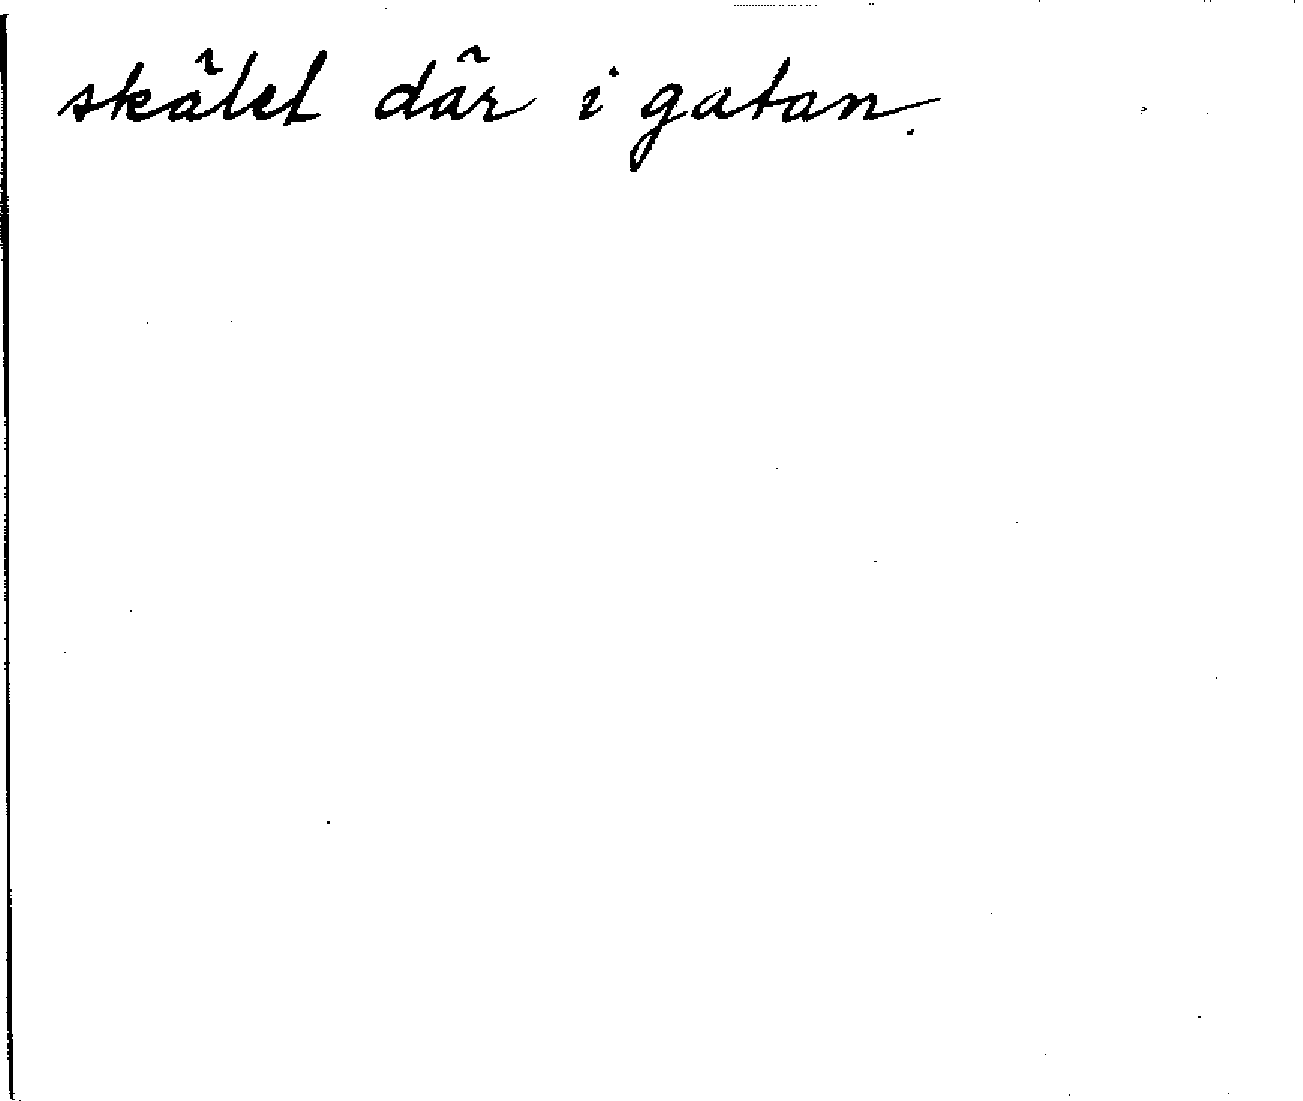 skälet där i gatan.